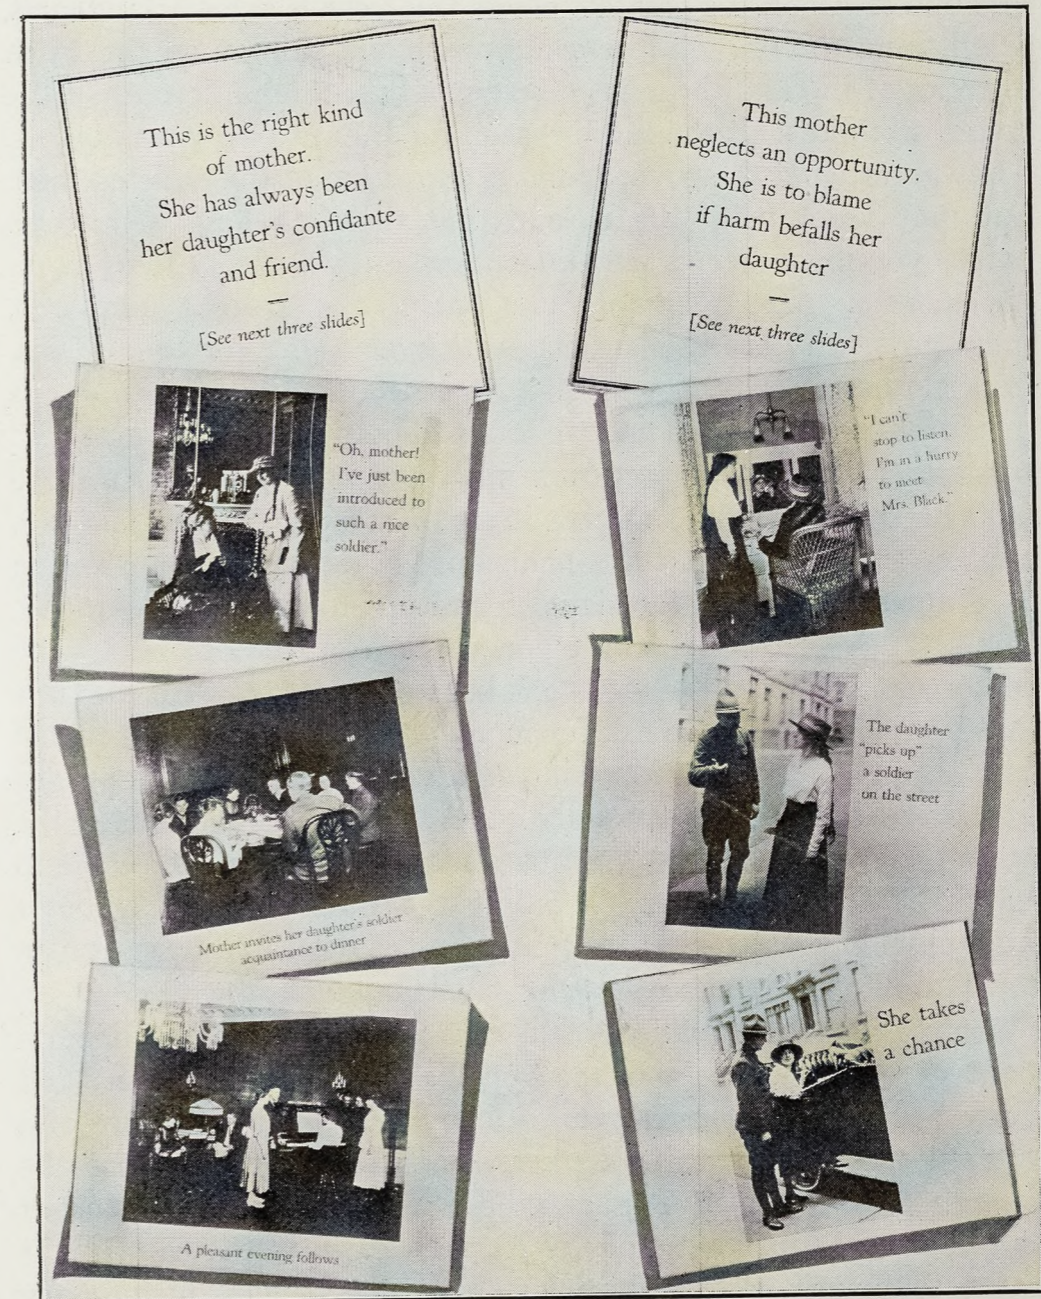 This is the right kind
of mother.
She has always been
her daughter's confidante
and friend.
[See next three slides]
"Oh, mother!
I've just been
introduced to
such a nice
soldier."
Mother invites her daughter's soldier
acquaintance to dinner
A pleasant evening follows
This mother
neglects an opportunity.
She is to blame
if harm befalls her
daughter
[See next three slides]
"I can't
stop to listen.
I'm in a hurry
to meet
Mrs. Black."
The daughter
"picks up"
a soldier
on the street
She takes
a chance